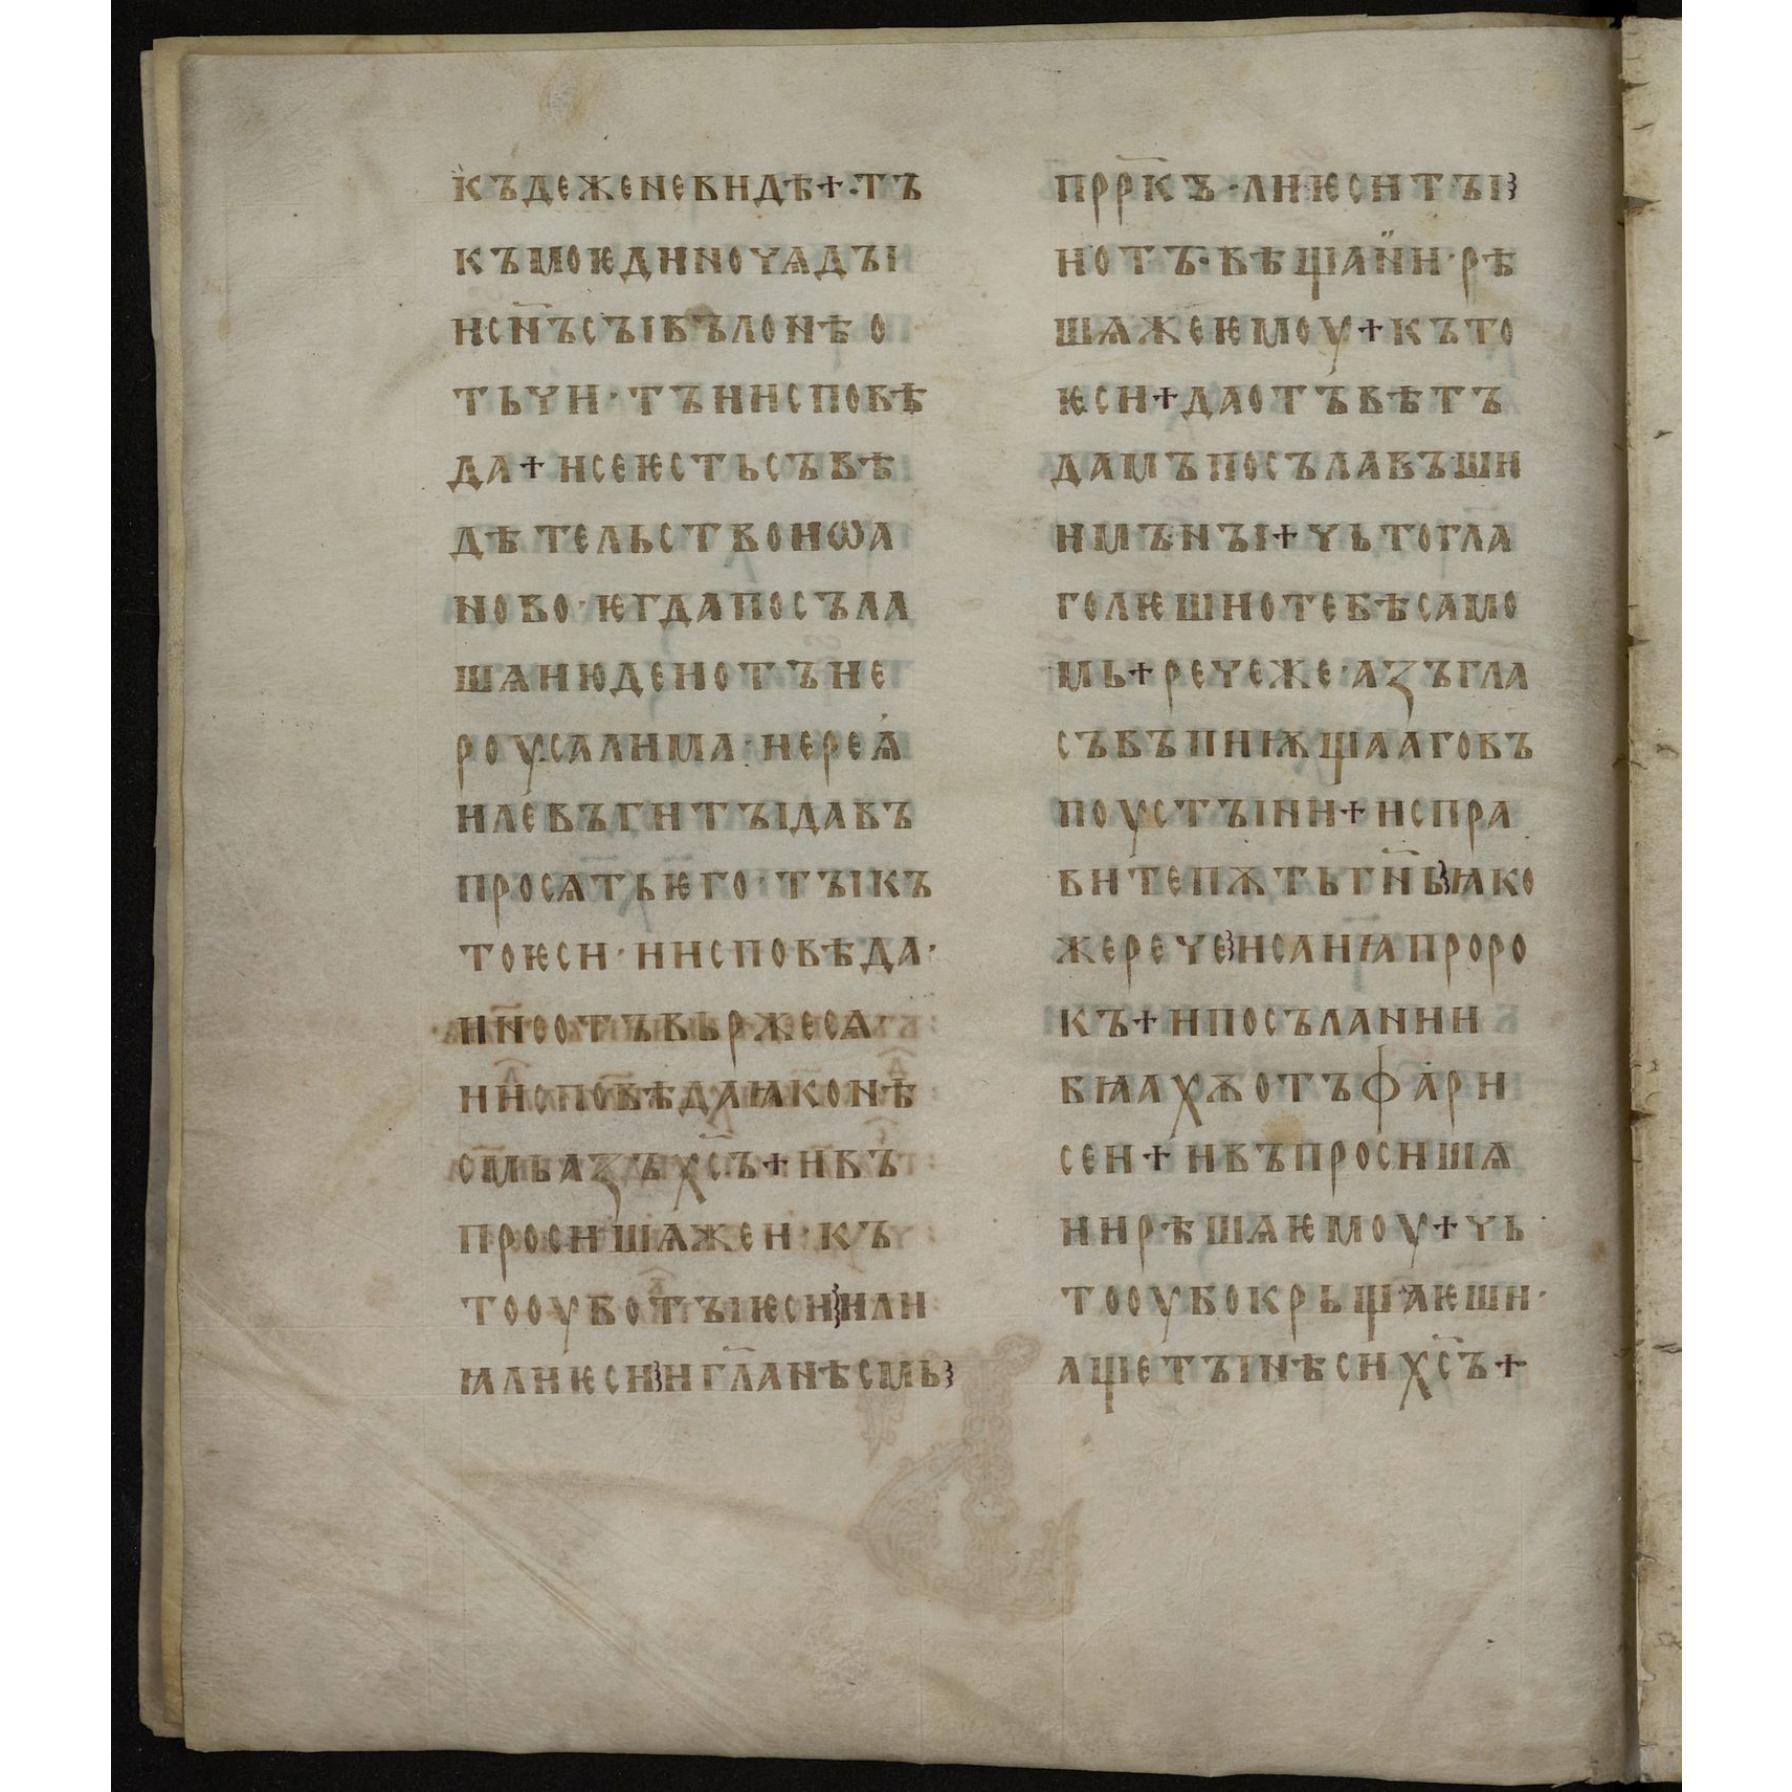 къдеженевидѣ+·тъ
къмоѥдиноѵѧдъі
исн҃ъсъівълонѣо
тьчи·тъиисповѣ
да+исеѥстьсъвѣ
дѣтельствоиѡа
ново·ѥгдапосъла
шѧиюдеиотъие
роусалима·иереѧ
илевъгитъідавъ
просѧтьѥго·тъікъ
тоѥси·иисповѣда·
ин҃еотъвьржесѧ
ииспо̅вѣдаꙗконѣ
см҃ьазъхс҃ъ+ивъ
просишѧжеи·къ
тооуботъіѥси꙳или
илиѥси꙳игл҃анѣсмь꙳
прр҃къ·лиѥситъі꙳
нотъ·вѣщании·рѣ
шѧжеѥмоу+къто
ѥси+даотъвѣтъ
дамъпосълавъши
имънъі+чьтогла
голѥшиотебѣсамо
мь+речеже·азъгла
съвъпиѭщааговъ
поустъіни+испра
витепѫтьгн҃ь꙳ꙗко
жерече꙳исаиꙗпроро
къ+ипосълании
бꙗахѫотъфари
сеи+ивъпросишѧ
иирѣшѧѥмоу+чь
тооубокрьщаѥши·
ащетъінѣсихс҃ъ+